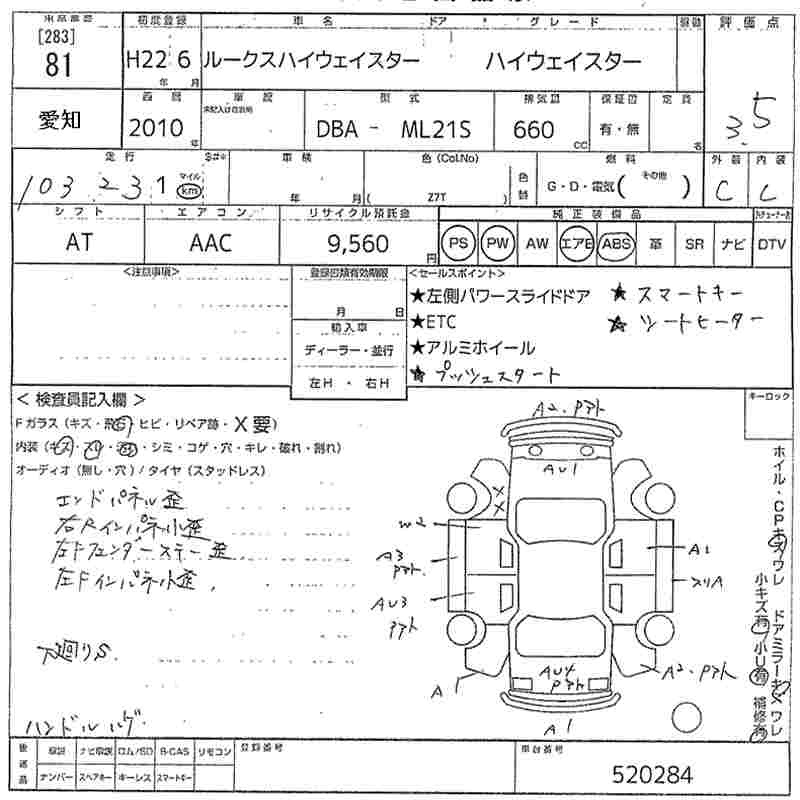 [283]
81
初度登録
車名
ドア・グレード
評価点
H22 6
年 月
ルークスハイウェイスター ハイウェイスター
3.5
愛知
2010
年
型式
DBA - ML21S
排気量
660
CC
有・無
定員
名
走行
103 231
マイル
km
車検
年 月
色(Col.No)
( Z7T )
色替
燃料
G・D・電気( その他 )
外装
内装
C C
シフト
AT
エアコン
AAC
リサイクル預託金
9,560
円
純正装備品
PS PW AW エアB ABS 革 SR ナビ DTV
<注意事項>
登録書類有効期限
月 日
輸入車
ディーラー・並行
左H・右H
<セールスポイント>
★左側パワースライドドア ★スマートキー
★ETC ★シートヒーター
★アルミホイール
★プッシュスタート
キーロック
<検査員記入欄>
Fガラス(キズ・飛石・ヒビ・リペア跡・X要)
内装(キズ・スリ・汚・シミ・コゲ・穴・キレ・破れ・割れ)
オーディオ(無し・穴)/タイヤ(スタッドレス)
エンドパネル歪
右Rインパネ小歪
左Fフェンダーステー歪
左Fインパネ小歪
下廻りS
ハンドルハゲ
A2.Pアト
AU1
W2
A3
Pアト.
AU3
Pアト
A1
スリA
A1
AU4
Pアト
A2.Pアト
A1
ホイル・CPキズワレ ドアミラーキズワレ
小キズ有 小U有 補修有
後送品
取説 ナビ取説 ロム/SD B-CAS リモコン
ナンバー スペアキー キーレス スマートキー
登録番号
車台番号
520284